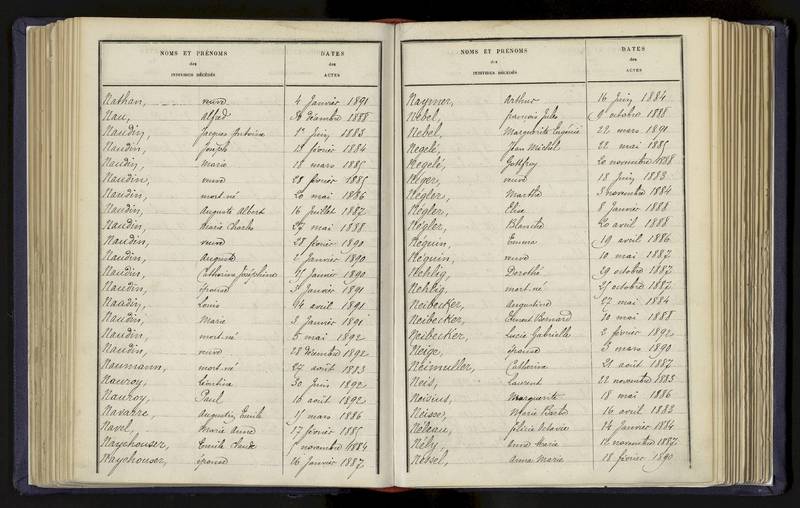 NOMS ET PRÉNOMS
des
INDIVIDUS DÉCÉDÉS
DATES
des
ACTES
Nathan, veuve 4 Janvier 1891
Nau, Alfred décembre 1888
Naudin, Jacques Antoine 1er Juin 1883
Naudin, Joseph 13 février 1884
Naudin, Marie 18 mars 1885
Naudin, veuve 28 février 1885
Naudin, mort-né 20 mai 1886
Naudin, Auguste Albert 16 Juillet 1887
Naudin, Marie Charles 27 mai 1888
Naudin, veuve 28 février 1890
Naudin, Auguste 2 Janvier 1890
Naudin, Catherine Joséphine 15 Janvier 1890
Naudin, épouse Janvier 1891
Naudin, Louis 14 avril 1891
Naudin, Marie 2 Janvier 1891
Naudin, mort-né 5 mai 1892
Naudin, veuve 28 décembre 1892
Naumann, mort-né 27 août 1883
Nauroy, 30 Juin 1892
Nauroy, Paul 16 août 1892
Navarre, Augustin Emile 15 mars 1886
Navel, Marie Anne 17 février 1885
Naychouser, Emile novembre 1884
Naychouser, épouse 26 Janvier 1887
NOMS ET PRÉNOMS
des
INDIVIDUS DÉCÉDÉS
DATES
des
ACTES
Naymer, Arthur 16 Juin 1884
Nebel, françois Jules 9 octobre 1888
Nebel, Marguerite Eugénie 22 mars 1891
Negelé, Jean Michel 22 mai 1885
Negelé, Gottfroy 20 novembre 1888
Néger, veuve 18 Juin 1883
Négler, Marthe 3 novembre 1884
Négler, Elise 8 Janvier 1888
Négler, Blanche 20 avril 1888
Néguin, Emma 19 avril 1886
Néguin, veuve 10 mai 1887
Nehlig, Dorothé 29 octobre 1887
Nehlig, mort-né 25 octobre 1887
Neibecker, Augustine 27 mai 1884
Neibecker, Ernest Bernard 10 mai 1888
Neibecker, Lucie Gabrielle 2 février 1892
Neige, épouse 3 mars 1890
Neimuller, Catherine 21 août 1887
Neis, Laurent 22 novembre 1883
Neisius, Marguerite 18 mai 1886
Neisse, Marie 16 avril 1883
Néleau, félicie Octavie 14 Janvier 1884
Nély, Anne Marie 12 novembre 1887
Anna Marie 18 février 1890